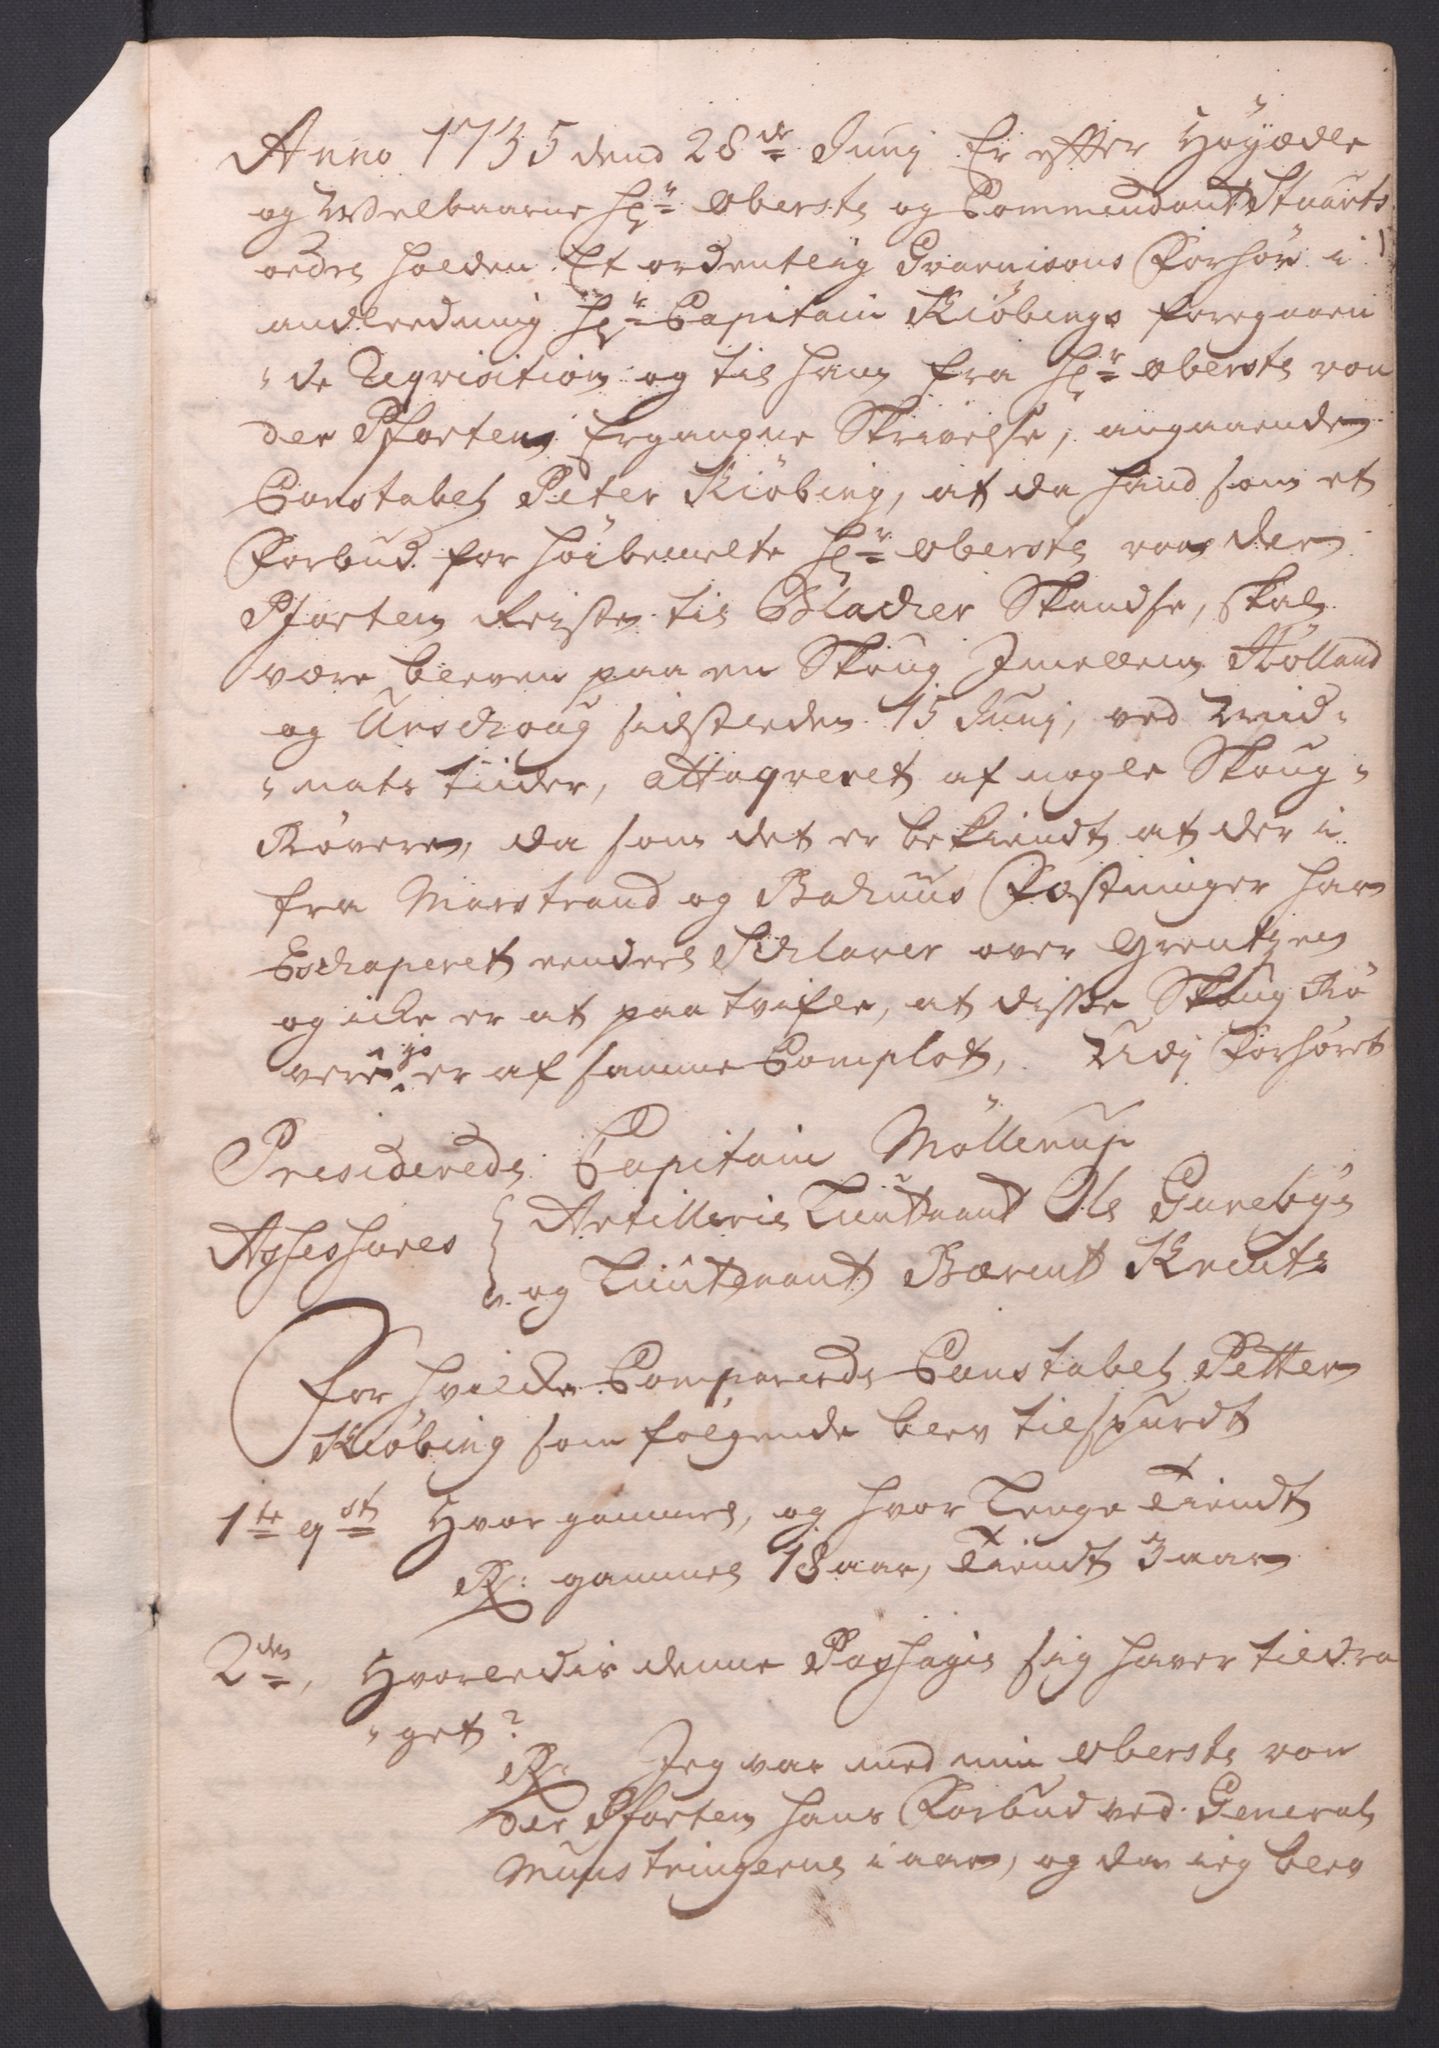 Anno 1735 dend 28de Junj Er efter Höÿædle
og Welbaarne Hr: Oberste og Commendant Stuarts
ordre holden Et ordentlig Guarnisons Forhör i
andleedning Hr: Capitain Kiöbings foregaaen
"de Reqvisition og til ham fra Hr: Oberste von
der Pforten Ergangne Skrivelse, angaaende
Constabel Peter Kiöbing, at da hand som et
Forbud for höibemelte Hr: Oberste von der
Pforten Reiste til Blacker Skandse, skal
være bleven paa en Skoug Imellem Hölland
og Urschoug sidstleden 15 Junj, ved Mid-
"nats tiider, attaqveret af nogle Skoug-
Rövere, da som det er bekiendt at der i
fra Marstrand og Bahuus Fæstninger har
Eschaperet eendeel Schlaver over Grentzen
og icke er at paa tvifle, at disse Skoug Rö
vere jo er af samme Complot, Udj Forhöret
Præsiderede Capitain Möllerup
Assessores { Artillerie Lieutnant Ole Garebÿe
og Lieutenant Bærent Kreutz
For hvilcke Comparerede Constabel Petter
Kiöbing som fölgende blev tilspurdt
1te qst Hvor gammel, og hvor Lenge Tiendt
R: gammel 18 aar, Tiendt 3 aar
2den, Hvorledis denne Passagie sig haver tildra
"get?
R: Jeg var med min Oberste von
der Pforten hans Forbud ved General
Mynstringerne i aar, og da ieg blev